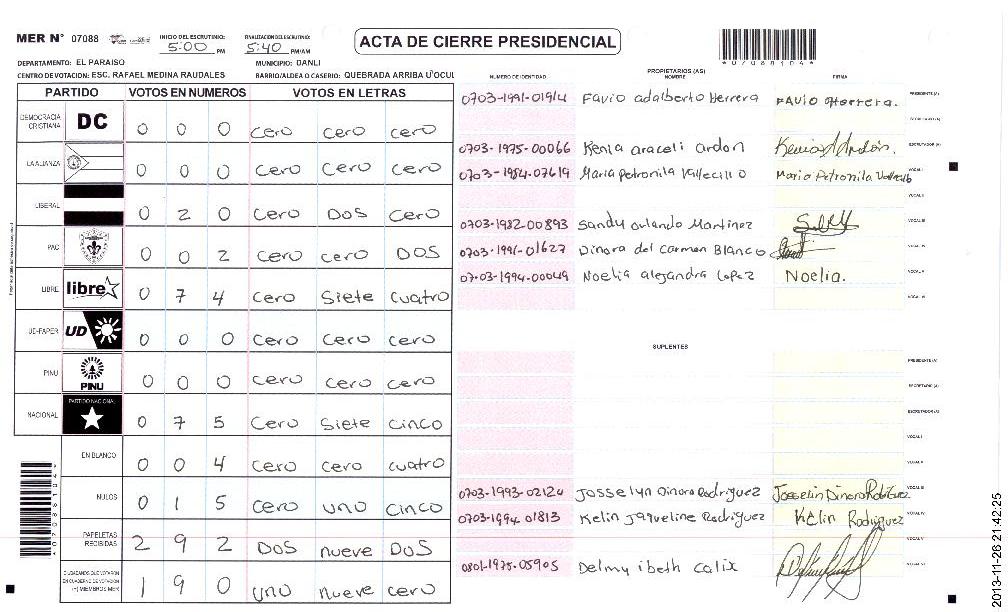 MER N° 07088
INICIO DEL ESCRUTINIO: 5:00 PM
FINALIZACION DEL ESCRUTINIO: 5:40 PM/AM
ACTA DE CIERRE PRESIDENCIAL
*07088104*
DEPARTAMENTO: EL PARAISO MUNICIPIO: DANLI
CENTRO DE VOTACION: ESC. RAFAEL MEDINA RAUDALES BARRIO/ALDEA O CASERIO: QUEBRADA ARRIBA U OCUL
PARTIDO VOTOS EN NUMEROS VOTOS EN LETRAS
DEMOCRACIA CRISTIANA DC 0 0 0 cero cero cero
LA ALIANZA 0 0 0 cero cero cero
LIBERAL 0 2 0 cero Dos cero
PAC 0 0 2 cero cero DOS
LIBRE libre 0 7 4 cero Siete cuatro
UD-FAPER UD 0 0 0 cero cero cero
PINU PINU 0 0 0 cero cero cero
NACIONAL PARTIDO NACIONAL 0 7 5 cero Siete cinco
EN BLANCO 0 0 4 cero cero cuatro
NULOS 0 1 5 cero uno cinco
PAPELETAS RECIBIDAS 2 9 2 DOS nueve DOS
CIUDADANOS QUE VOTARON EN CUADERNO DE VOTACION (+) MIEMBROS MER 1 9 0 uno nueve cero
*07088104*
PROPIETARIOS (AS)
NUMERO DE IDENTIDAD NOMBRE FIRMA
0703-1991-01914 Favio adalberto Herrera Favio Herrera. PRESIDENTE (A)
SECRETARIO (A)
0703-1975-00066 Kenia araceli ardon Kenia Ardón. ESCRUTADOR (A)
0703-1984-07619 Maria Petronila Vallecillo Maria Petronila Vallecillo VOCAL I
VOCAL II
0703-1982-00893 Sandy orlando Martinez VOCAL III
0703-1991-01627 Dinora del Carmen Blanco VOCAL IV
0703-1994-00049 Noelia alejandra Lopez Noelia. VOCAL V
VOCAL VI
SUPLENTES
PRESIDENTE (A)
SECRETARIO (A)
ESCRUTADOR (A)
VOCAL I
VOCAL II
0703-1993-02124 Josselyn Dinora Rodriguez Josselin Dinora Rodriguez VOCAL III
0703-1994-01813 Kelin Jaqueline Rodriguez Kelin Rodriguez VOCAL IV
VOCAL V
0801-1975-05905 Delmy ibeth Calix VOCAL VI
2013-11-26 21:42:25